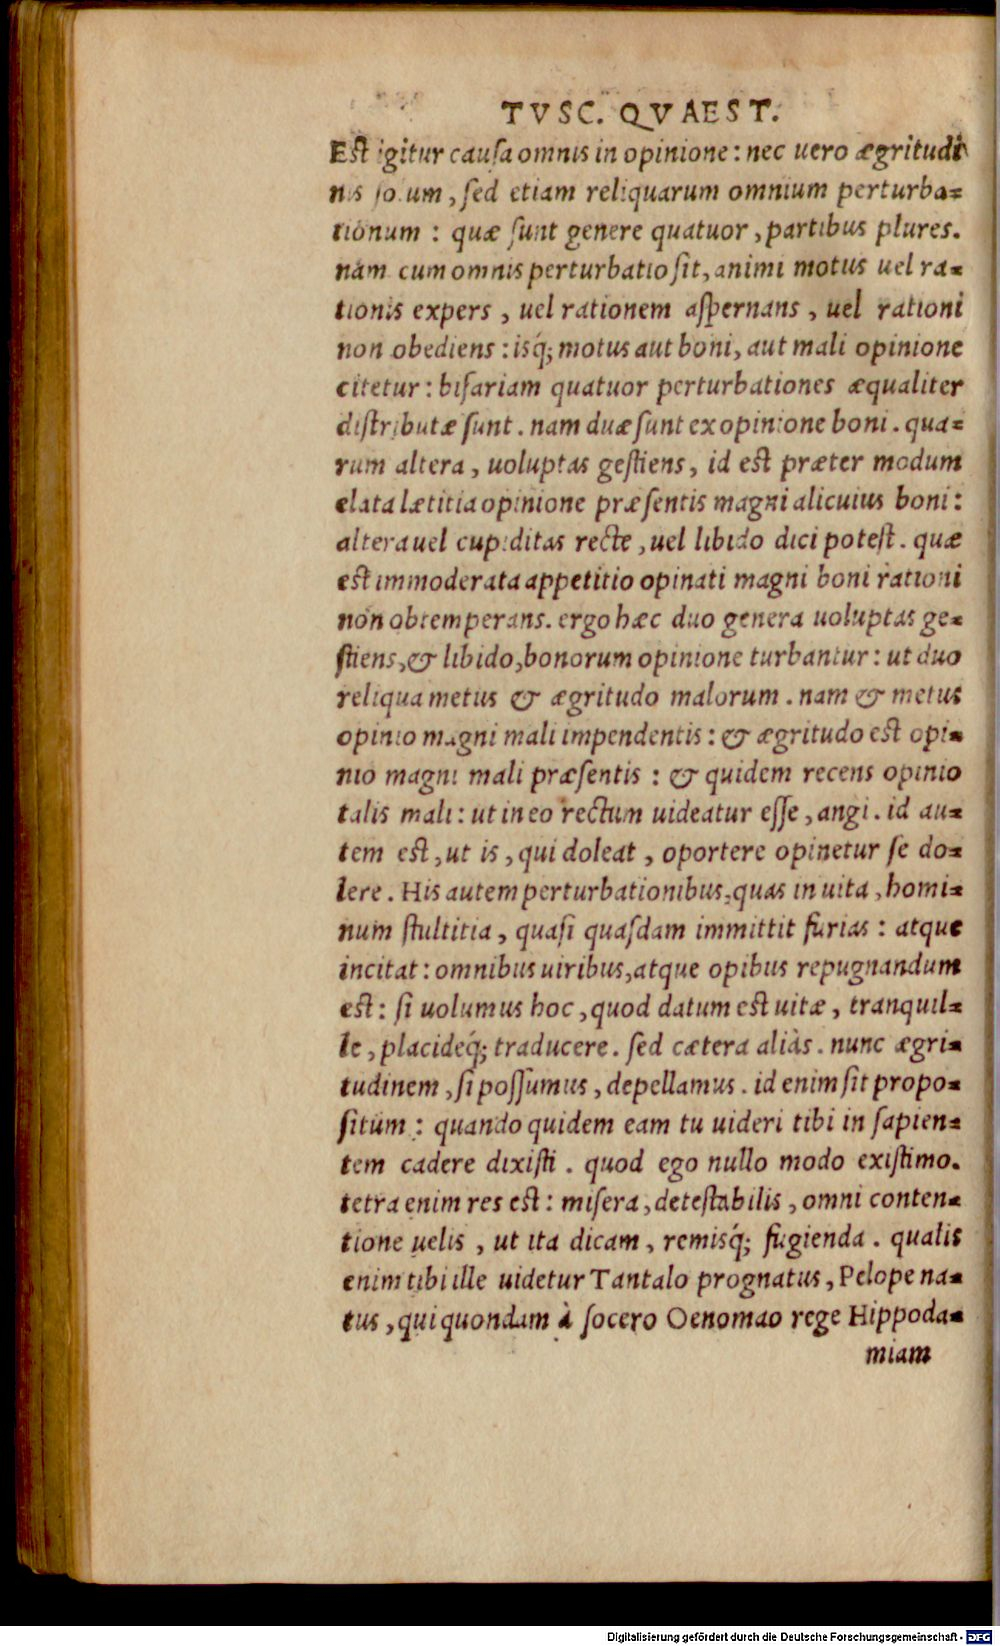 TVSC. QVAEST.
Est igitur causa omnis in opinione: nec uero ægritudi
nis solum, sed etiam reliquarum omnium perturba-
tionum: quæ sunt genere quatuor, partibus plures.
nam cum omnis perturbatio sit, animi motus uel ra-
tionis expers, uel rationem aspernans, uel rationi
non obediens: isq́; motus aut boni, aut mali opinione
citetur: bifariam quatuor perturbationes æqualiter
distributæ sunt. nam duæ sunt ex opinione boni. qua-
rum altera, uoluptas gestiens, id est præter modum
elata lætitia opinione præsentis magni alicuius boni:
altera uel cupiditas recte, uel libido dici potest. quæ
est immoderata appetitio opinati magni boni rationi
non obtemperans. ergo hæc duo genera uoluptas ge-
stiens, & libido, bonorum opinione turbantur: ut duo
reliqua metus & ægritudo malorum. nam & metus
opinio magni mali impendentis: & ægritudo est opi-
nio magni mali præsentis: & quidem recens opinio
talis mali: ut in eo rectum uideatur esse, angi. id au-
tem est, ut is, qui doleat, oportere opinetur se do-
lere. His autem perturbationibus, quas in uita, homi-
num stultitia, quasi quasdam immittit furias: atque
incitat: omnibus uiribus, atque opibus repugnandum
est: si uolumus hoc, quod datum est uitæ, tranquil-
le, placideq́; traducere. sed cætera aliàs. nunc ægri-
tudinem, si possumus, depellamus. id enim sit propo-
situm: quando quidem eam tu uideri tibi in sapien-
tem cadere dixisti. quod ego nullo modo existimo.
tetra enim res est: misera, detestabilis, omni conten-
tione uelis, ut ita dicam, remisq́; fugienda. qualis
enim tibi ille uidetur Tantalo prognatus, Pelope na-
tus, qui quondam à socero Oenomao rege Hippoda-
miam
Digitalisierung gefördert durch die Deutsche Forschungsgemeinschaft - DFG